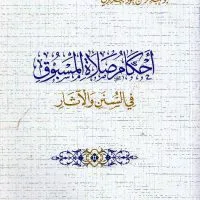 أحكام صلاة المسبوق
في السنن والآثار